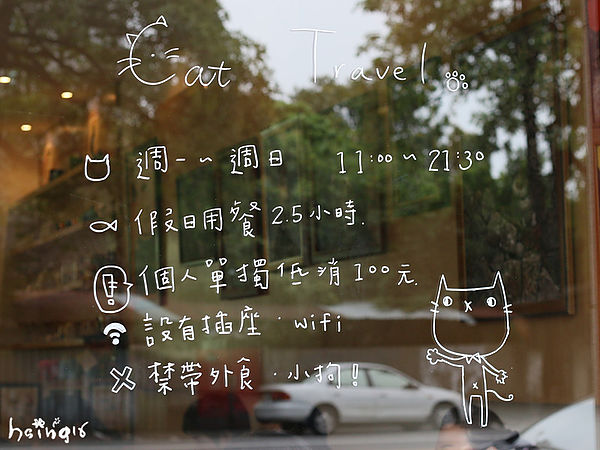 Cat Travel
週一~週日 11:00~21:30
假日用餐 2.5小時.
個人單獨低消100元.
設有插座．wifi
禁帶外食．小狗!
hsing16